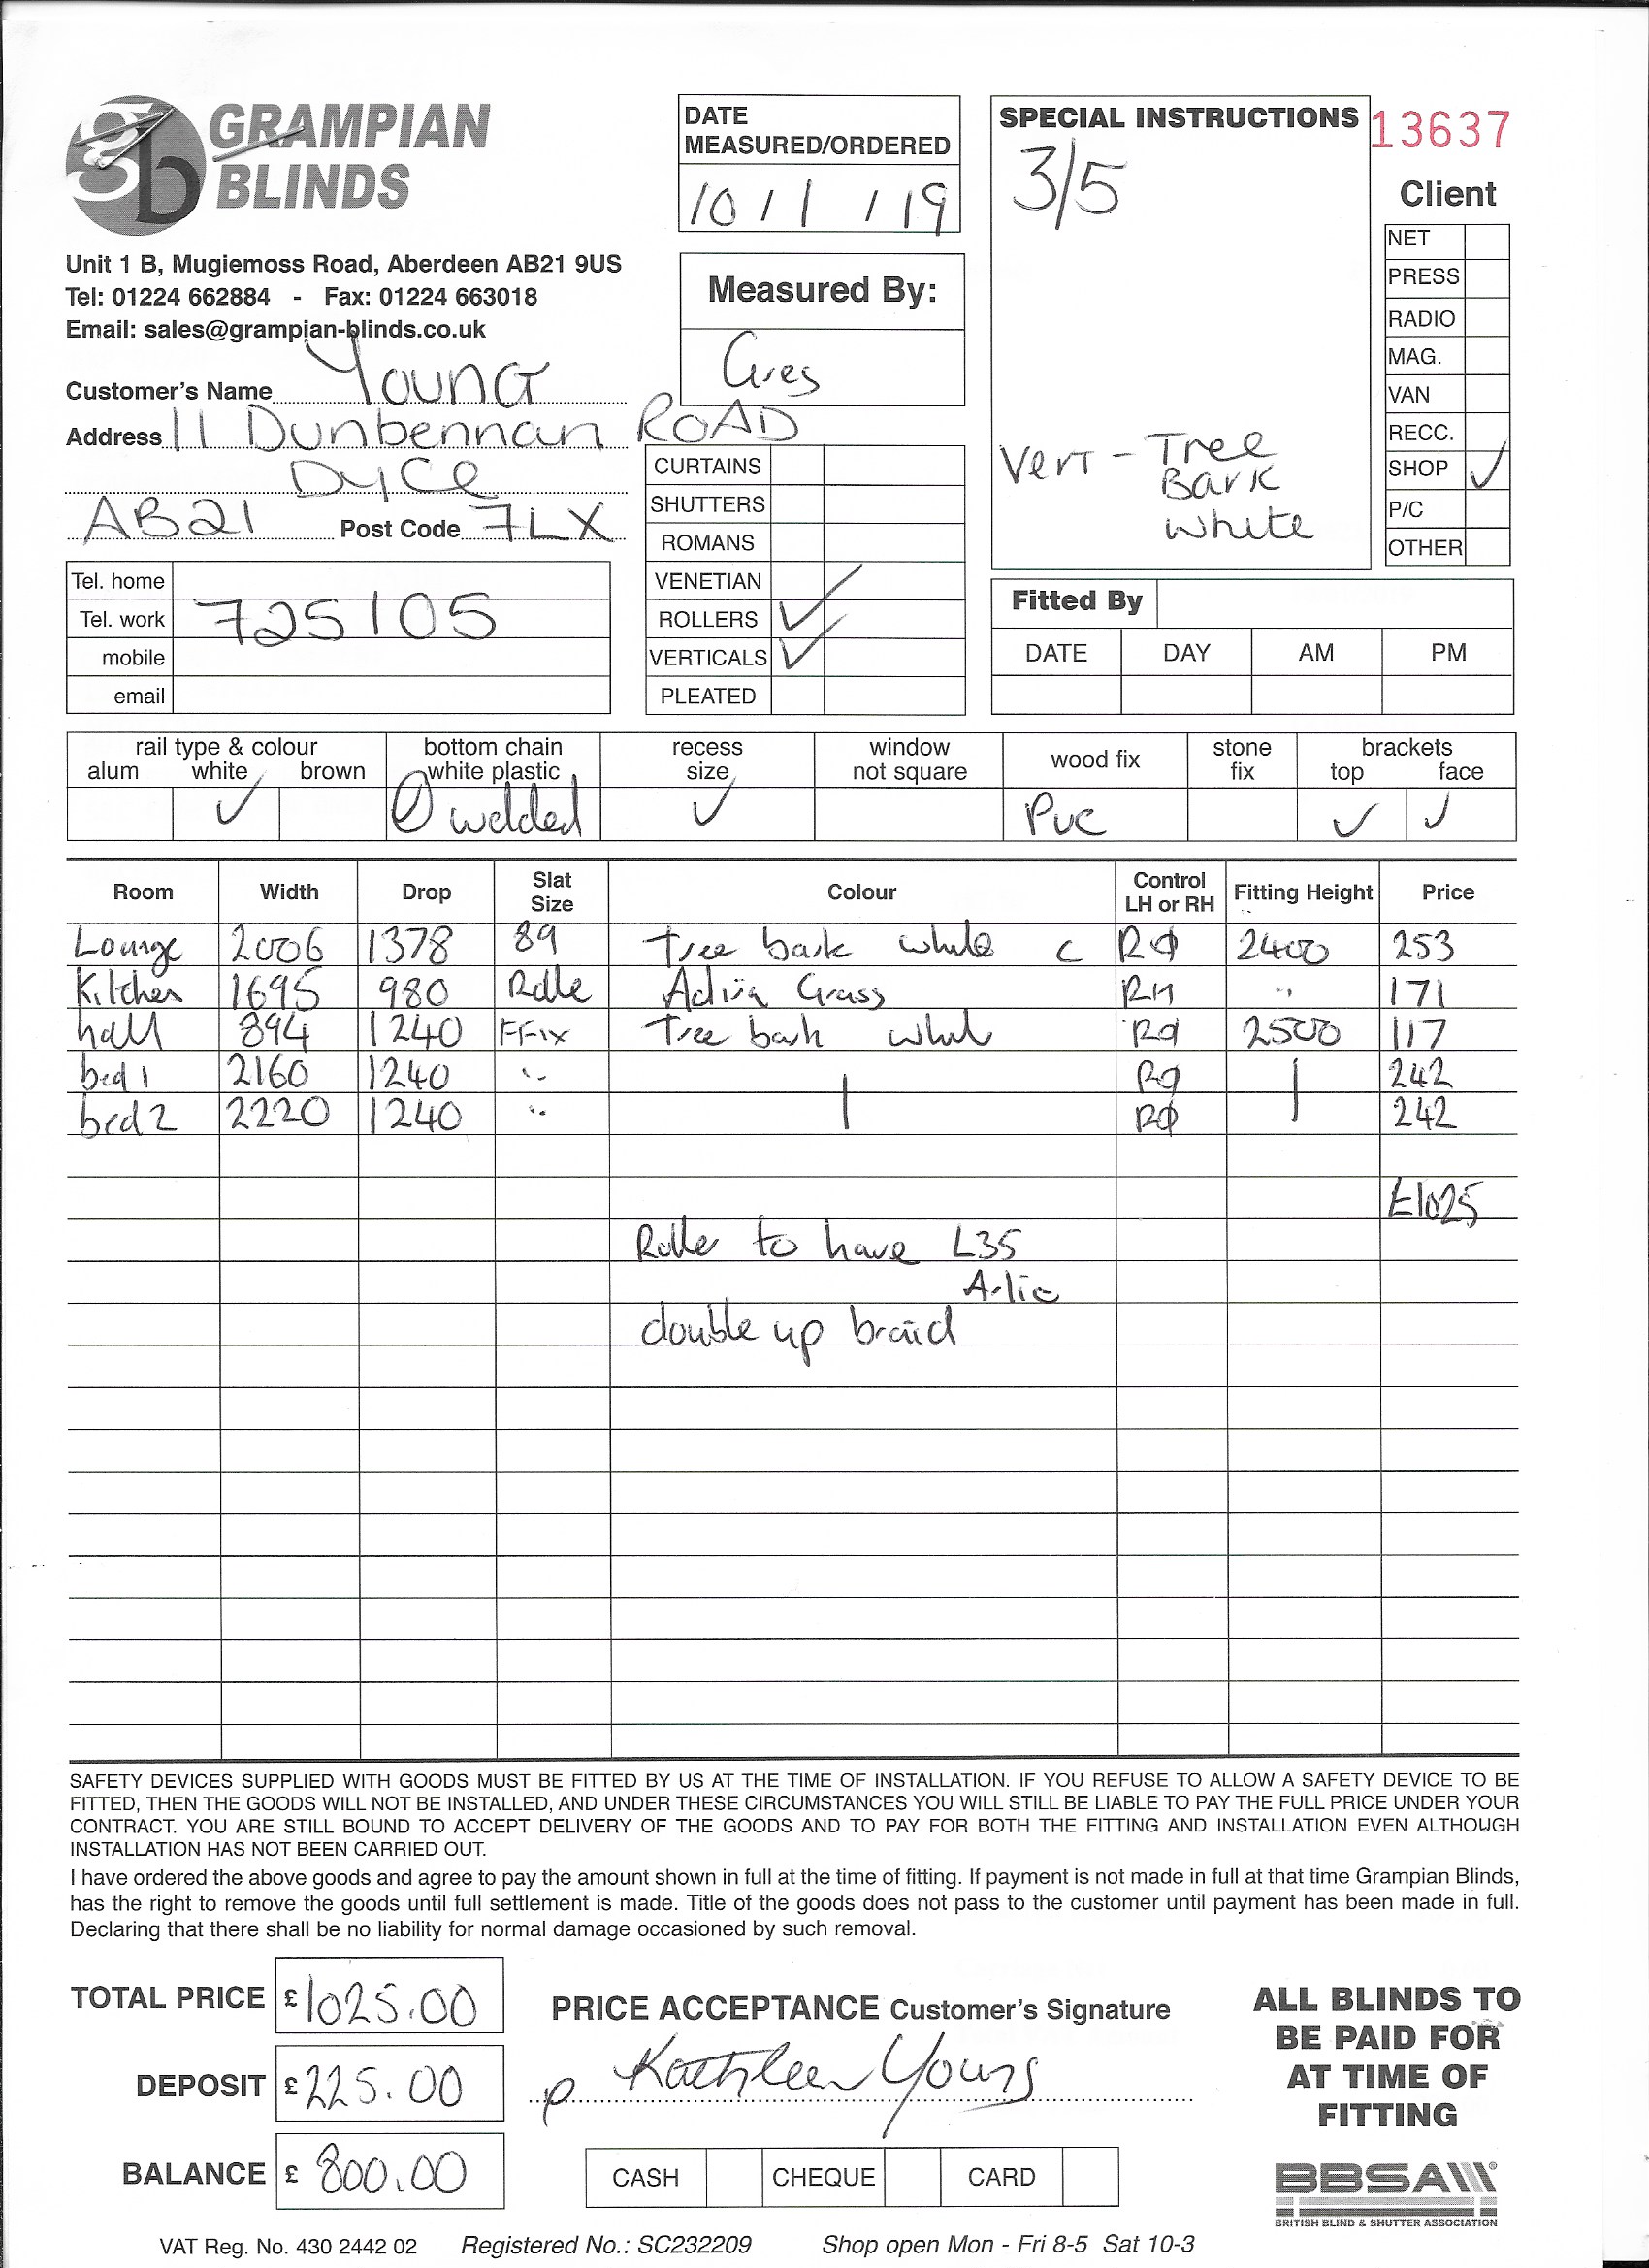 GRAMPIAN
BLINDS
Unit 1 B, Mugiemoss Road, Aberdeen AB21 9US
Tel: 01224 662884 - Fax: 01224 663018
Email: sales@grampian-blinds.co.uk
Customer's Name Young
Address 11 Dunbennan ROAD
Dyce
AB21 Post Code 7LX
Tel. home
Tel. work 725105
mobile
email
DATE
MEASURED/ORDERED
10/1/19
Measured By:
Greg
CURTAINS
SHUTTERS
ROMANS
VENETIAN
ROLLERS ✓
VERTICALS ✓
PLEATED
SPECIAL INSTRUCTIONS
3/5
Vert - Tree
Bark
White
13637
Client
NET
PRESS
RADIO
MAG.
VAN
RECC.
SHOP ✓
P/C
OTHER
Fitted By
DATE DAY AM PM
rail type & colour bottom chain recess window wood fix stone brackets
alum white brown white plastic size not square fix top face
✓ welded ✓ PVC ✓ ✓
Room Width Drop Slat Size Colour Control LH or RH Fitting Height Price
Lounge 2006 1378 89 Tree bark white C 2400 253
Kitchen 1695 980 Rolle Grass RH " 171
hall 894 1240 FFix Tree bark white 2500 117
bed 1 2160 1240 " 242
bed 2 2220 1240 " 242
£1025
Roller to have L35
double up braid
SAFETY DEVICES SUPPLIED WITH GOODS MUST BE FITTED BY US AT THE TIME OF INSTALLATION. IF YOU REFUSE TO ALLOW A SAFETY DEVICE TO BE
FITTED, THEN THE GOODS WILL NOT BE INSTALLED, AND UNDER THESE CIRCUMSTANCES YOU WILL STILL BE LIABLE TO PAY THE FULL PRICE UNDER YOUR
CONTRACT. YOU ARE STILL BOUND TO ACCEPT DELIVERY OF THE GOODS AND TO PAY FOR BOTH THE FITTING AND INSTALLATION EVEN ALTHOUGH
INSTALLATION HAS NOT BEEN CARRIED OUT.
I have ordered the above goods and agree to pay the amount shown in full at the time of fitting. If payment is not made in full at that time Grampian Blinds,
has the right to remove the goods until full settlement is made. Title of the goods does not pass to the customer until payment has been made in full.
Declaring that there shall be no liability for normal damage occasioned by such removal.
TOTAL PRICE £1025.00
DEPOSIT £225.00
BALANCE £800.00
PRICE ACCEPTANCE Customer's Signature
p Kathleen Young
CASH CHEQUE CARD
ALL BLINDS TO
BE PAID FOR
AT TIME OF
FITTING
BBSA
BRITISH BLIND & SHUTTER ASSOCIATION
VAT Reg. No. 430 2442 02 Registered No.: SC232209 Shop open Mon - Fri 8-5 Sat 10-3